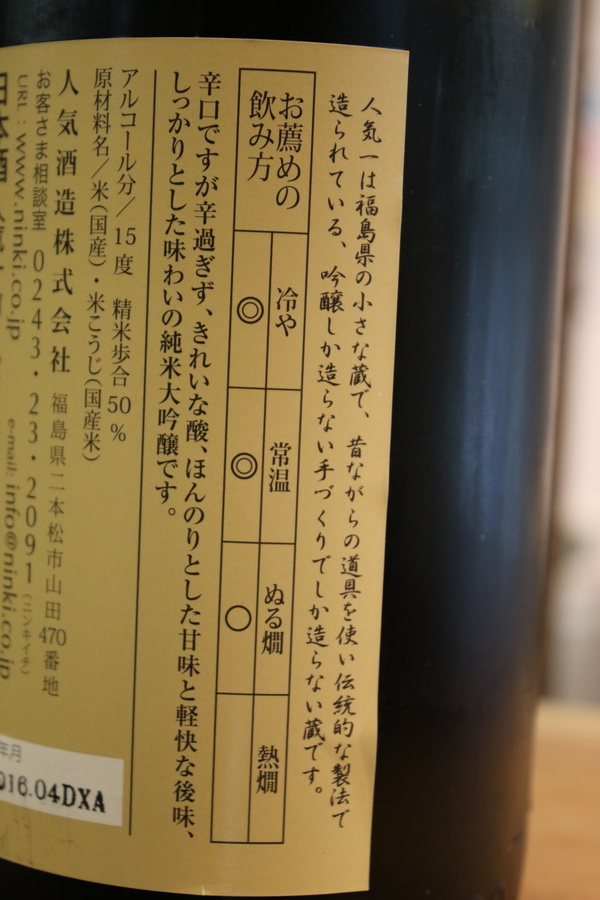 人気一は福島県の小さな蔵で、昔ながらの道具を使い伝統的な製法で
造られている、吟醸しか造らない手づくりでしか造らない蔵です。
お薦めの飲み方
冷や ◎
常温 ◎
ぬる燗 ○
熱燗
辛口ですが辛過ぎず、きれいな酸、ほんのりとした甘味と軽快な後味、
しっかりとした味わいの純米大吟醸です。
アルコール分／15度 精米歩合50%
原材料名／米(国産)・米こうじ(国産米)
人気酒造株式会社 福島県二本松市山田470番地
お客さま相談室 0243・23・2091(ニンキイチ)
URL：www.ninki.co.jp e-mail: info@ninki.co.jp
日本酒
年月
016.04DXA